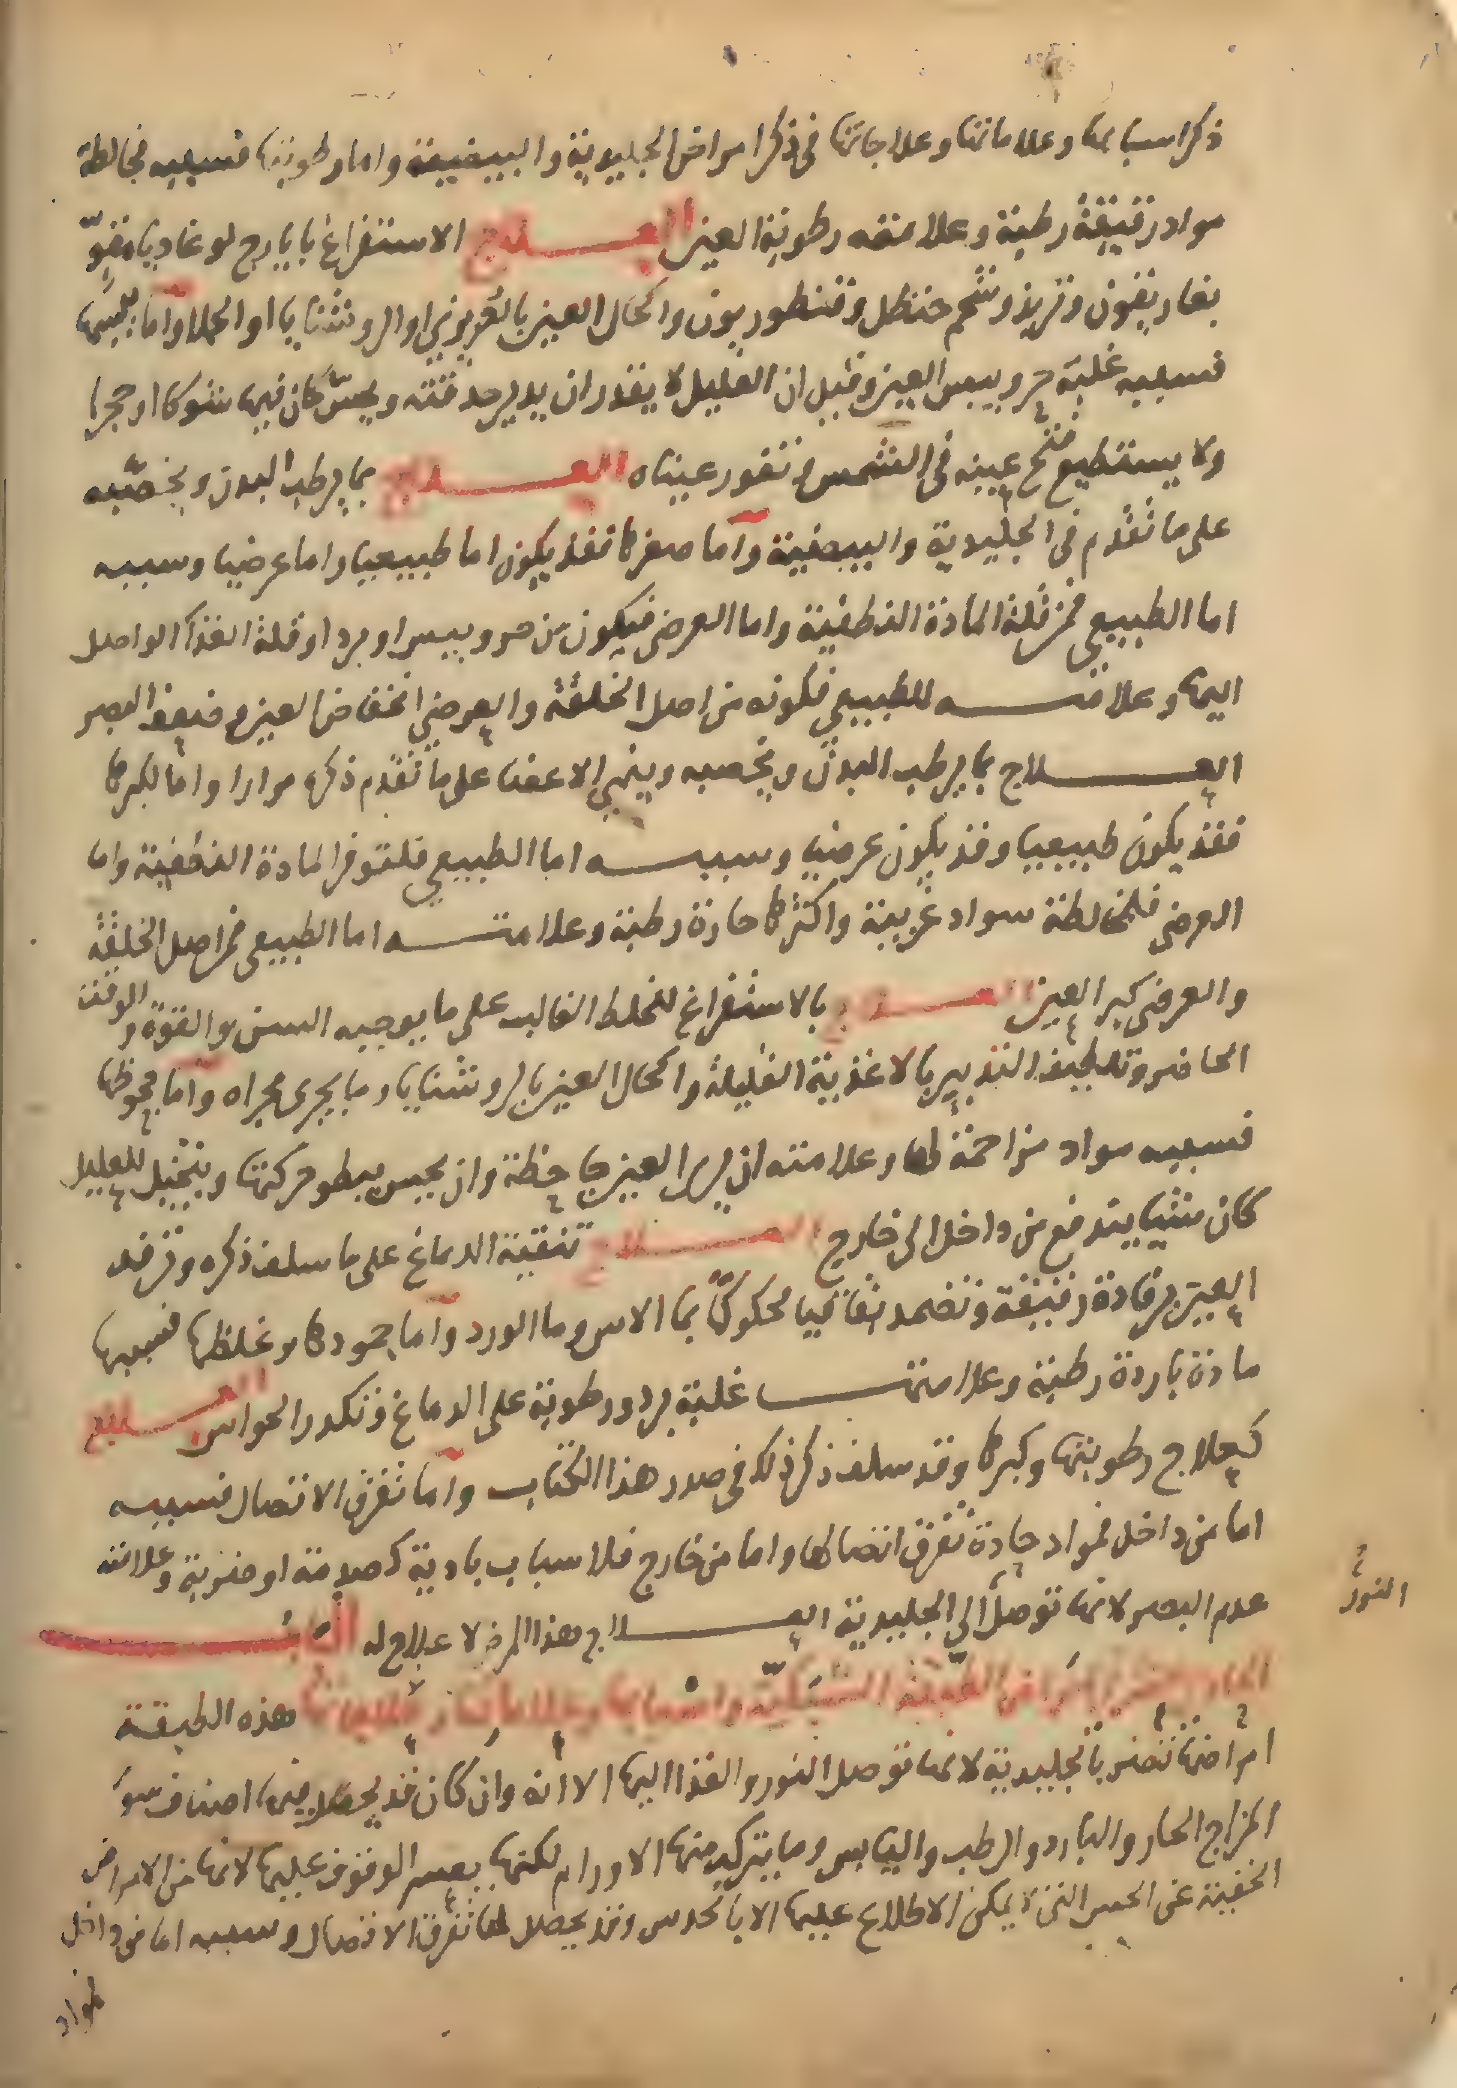 ذكر اسبابها وعلاماتها وعلاجاتها فى ذكر امراض الجليدية والبيضية واما رطوبتها فسببه مخالطة
مواد رقيقة رطبة وعلامته رطوبة العين العلاج الاستفراغ بايارج لوغاديا مقوّ
بغاريقون وتربذ وشحم حنظل وقنطوريون واكحال العين بالعزيزى او الروشنايا او الجلا واما يبسها
فسببه غلبة حر ويبس العين وقبل ان العليل لا يقدر ان يدير حدقته ويحسّ كان فيها شوكا او حجرا
ولا يستطيع فتح عينه فى الشمس و تغور عيناه العلاج بما يرطب البدن ويخصّبه
على ما تقدم فى الجليدية والبيضية واما صغرها فقد يكون اما طبيعيا واما عرضيا وسببه
اما الطبيعي فمن قلة المادة النطفية واما العرضى فيكون من حر ويبس او برد او قلة الغذا الواصل
اليها وعلامته للطبيعي فكونه من اصل الخلقة والعرضى انخفاض العين و ضعف البصر
العلاج بما يرطب البدن ويخصبه وينمي الاعضا على ما تقدم ذكره مرارا واما لكبرها
فقد يكون طبيعيا وقد يكون عرضيا وسببه اما الطبيعي فلتوفر المادة النطفية واما
العرضى فلمخالطة مواد غريبة واكثرها حارة رطبة وعلامته اما الطبيعي فمن اصل الخلقة
والعرضى كبر العين العلاج بالاستفراغ للخلط الغالب على ما يوجبه السن والقوة و الوقت
الحاضر وتلطيف التدبير بالاغذية القليلة واكحال العين بالروشنايا وما يجرى مجراه واما جحوظها
فسببه مواد مزاحمة لها وعلامته ان يرى العين جاحظة وان يحس ببطو حركتها ويتخيل للعليل
كان شيا يندفع من داخل الى خارج العلاج تنقية الدماغ على ما سلف ذكره وترفد
العين برفادة رقيقة وتضمد بقاقيا محكوكًا بما الاس وما الورد واما جمودها و غلظها فسببها
مادة باردة رطبة وعلامتها غلبة برد ورطوبة على الدماغ وتكدر الحواس العلاج
كعلاج رطوبتها وكبرها وقد سلف ذكر ذلك فى صدر هذا الكتاب واما تفرق الاتصال فسببه
اما من داخل لمواد حادة تفرق اتصالها واما من خارج فلاسباب بادية كصدمة او ضربة وعلامته
عدم البصر لانها توصل الي الجليدية العلاج هذا المرض لا علاج له الباب
النور
الحادى عشر فى امراض الطبقة الشبكيّة واسبابها وعلاماتها وعلاجاتها هذه الطبقة
امراضها تضر بالجليدية لانها توصل النور والغذا اليها الا انه وان كان قد يحصل فيها اصناف سوء
المزاج الحار والبارد والرطب واليابس وما يتركب منها الاورام لكنها يعسر الوقوف عليها لانها من الامراض
الخفية عن الحس التى لا يمكن الاطلاع عليها الا بالحدس وقد يحصل لها تفرق الاتصال وسببه اما من داخل
لمواد